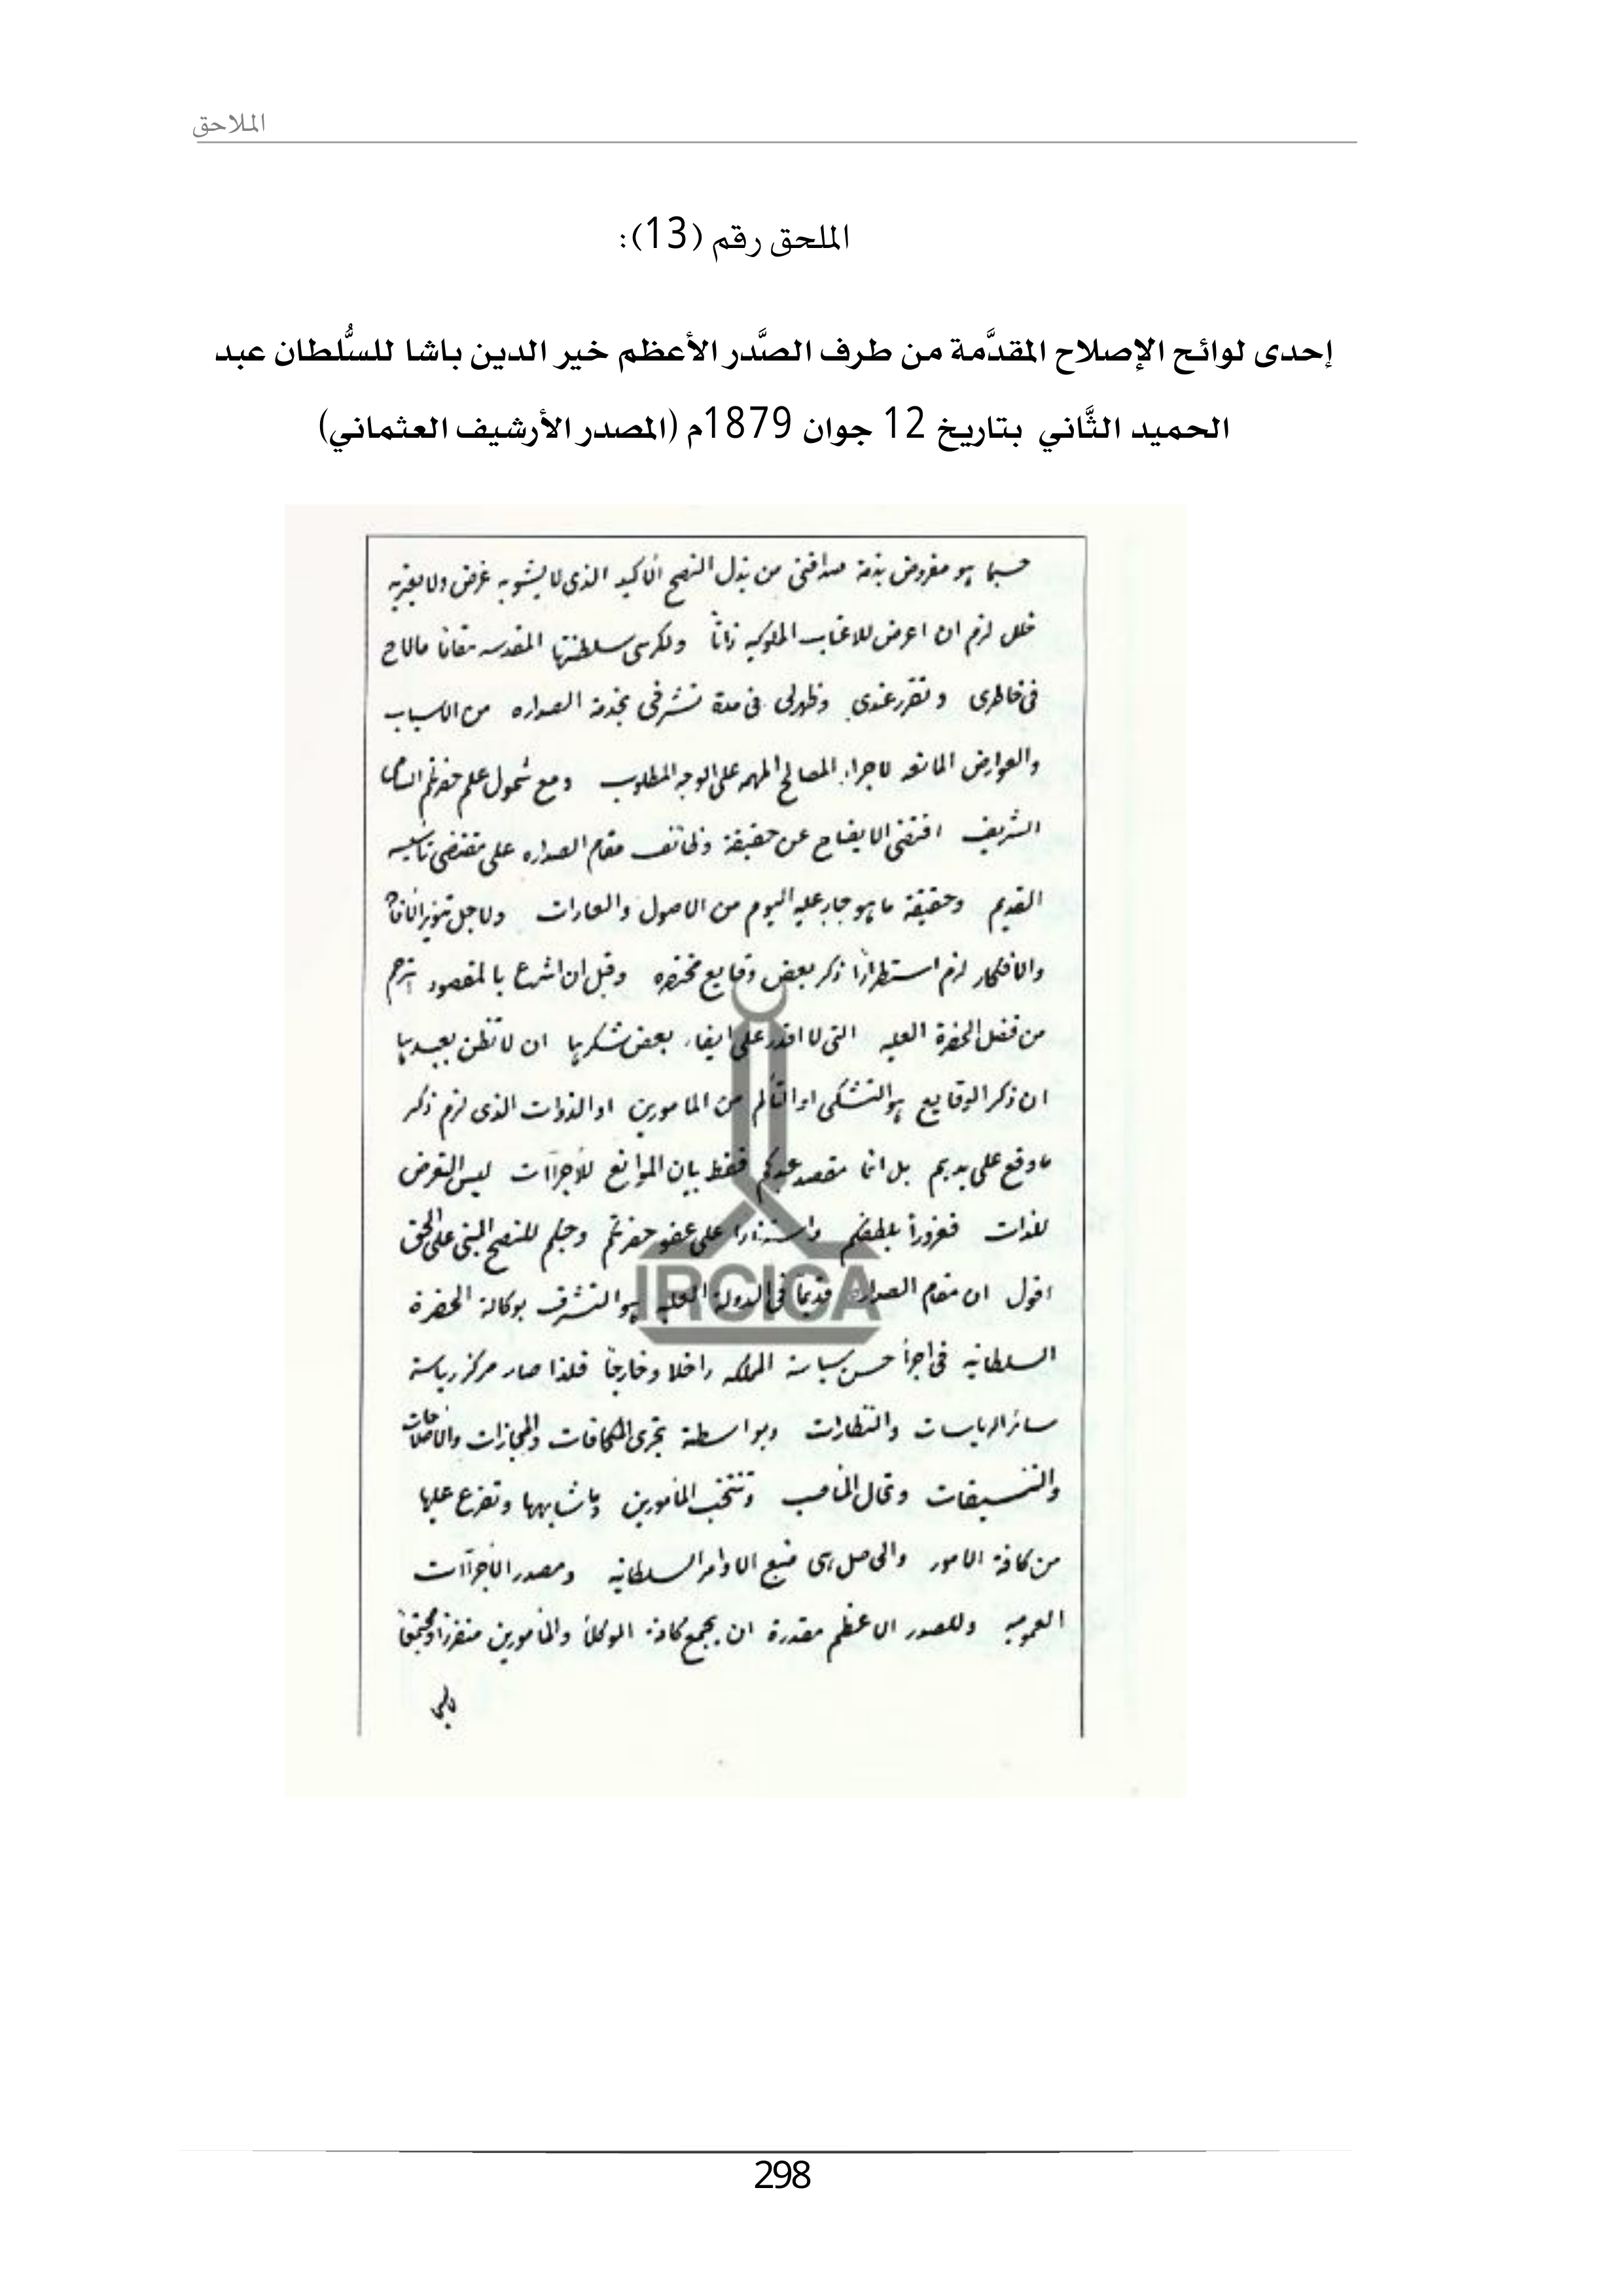 الملاحق
الملحق رقم (13):
إحدى لوائح الإصلاح المقدَّمة من طرف الصَّدر الأعظم خير الدين باشا للسُّلطان عبد
الحميد الثَّاني بتاريخ 12 جوان 1879م (المصدر الأرشيف العثماني)
حسبما هو مفروض بذمة صداقتى من بذل النصح الأكيد الذى لا يشوبه غرض ولا يعتريه
خلل لزم ان اعرض للاعتاب الملوكيه ذاتاً ولكرسى سلطنتها المقدسه مقاما مالاح
فى خاطرى وتقرر عندى وظهرلى فى مدة تشرفى بخدمة الصداره من الاسباب
والعوارض المانعه لاجراء المصالح المهمه على الوجه المطلوب ومع شمول علم حضرتكم السامى
الشريف اقتضى الايضاح عن حقيقة وظائف مقام الصداره على مقتضى تأسيسه
القديم وحقيقة ما هو جار عليه اليوم من الاصول والعادات ولاجل تنوير
والافكار لزم استطراداً ذكر بعض وقايع مختصره وقبل ان اشرع بالمقصود استرحم
من فضل الحضرة العليه التى لا اقدر على ايفاء بعض شكرها ان لا تظن بعبدها
ان ذكر الوقايع هو التشكى او التألم من المامورين او الذوات الذى لزم ذكر
ماوقع على يديهم بل انما مقصد عبدكم فقط بيان الموانع للأجراآت ليس التعرض
للذوات فغروراً بلطفكم واستنادا على عفو حضرتكم وحبكم للنصح المبنى على الحق
اقول ان مقام الصداره قديماً فى الدولة العليه هو التشرف بوكالة الحضرة
السلطانيه فى اجرأ حسن سياسة المملكه داخلا وخارجاً فلذا صار مركز رياسة
سائر الرياسات والنظارات وبواسطة تجرى المكافات والمجازات والاصلاحات
والتنسيقات وتحال المناصب وتنتخب المأمورين وماشابهها وتفرع عليها
من كافة الامور والحاصل هى منبع الاوامر السلطانيه ومصدر الأجراآت
العموميه وللصدر الاعظم مقدرة ان يجمع كافة الوكلأ والمأمورين منفرداً ومجتمعاً
IRCICA
298